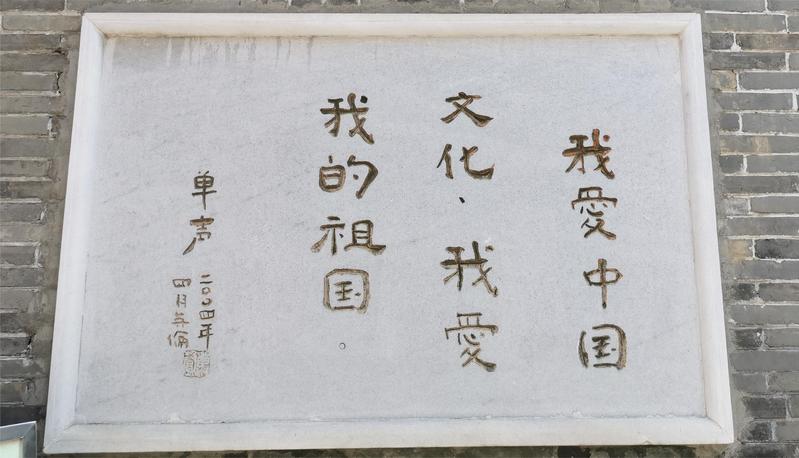 我愛中国
文化、我愛
我的祖国。
单声
二〇〇四年
四月英倫